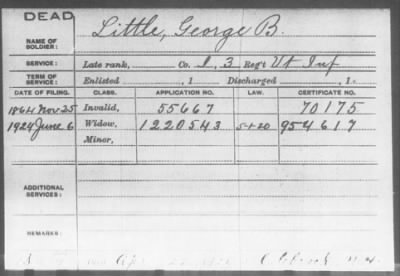 DEAD
NAME OF SOLDIER: Little, George B.
SERVICE: Late rank, Co. I, 3 Regt Vt Inf
TERM OF SERVICE: Enlisted , 1 Discharged , 1
DATE OF FILING. CLASS. APPLICATION NO. LAW. CERTIFICATE NO.
1864 Nov 25 Invalid, 55667 70175
1924 June 6 Widow, 1220543 5-1-20 954617
Minor,
ADDITIONAL SERVICES:
REMARKS: